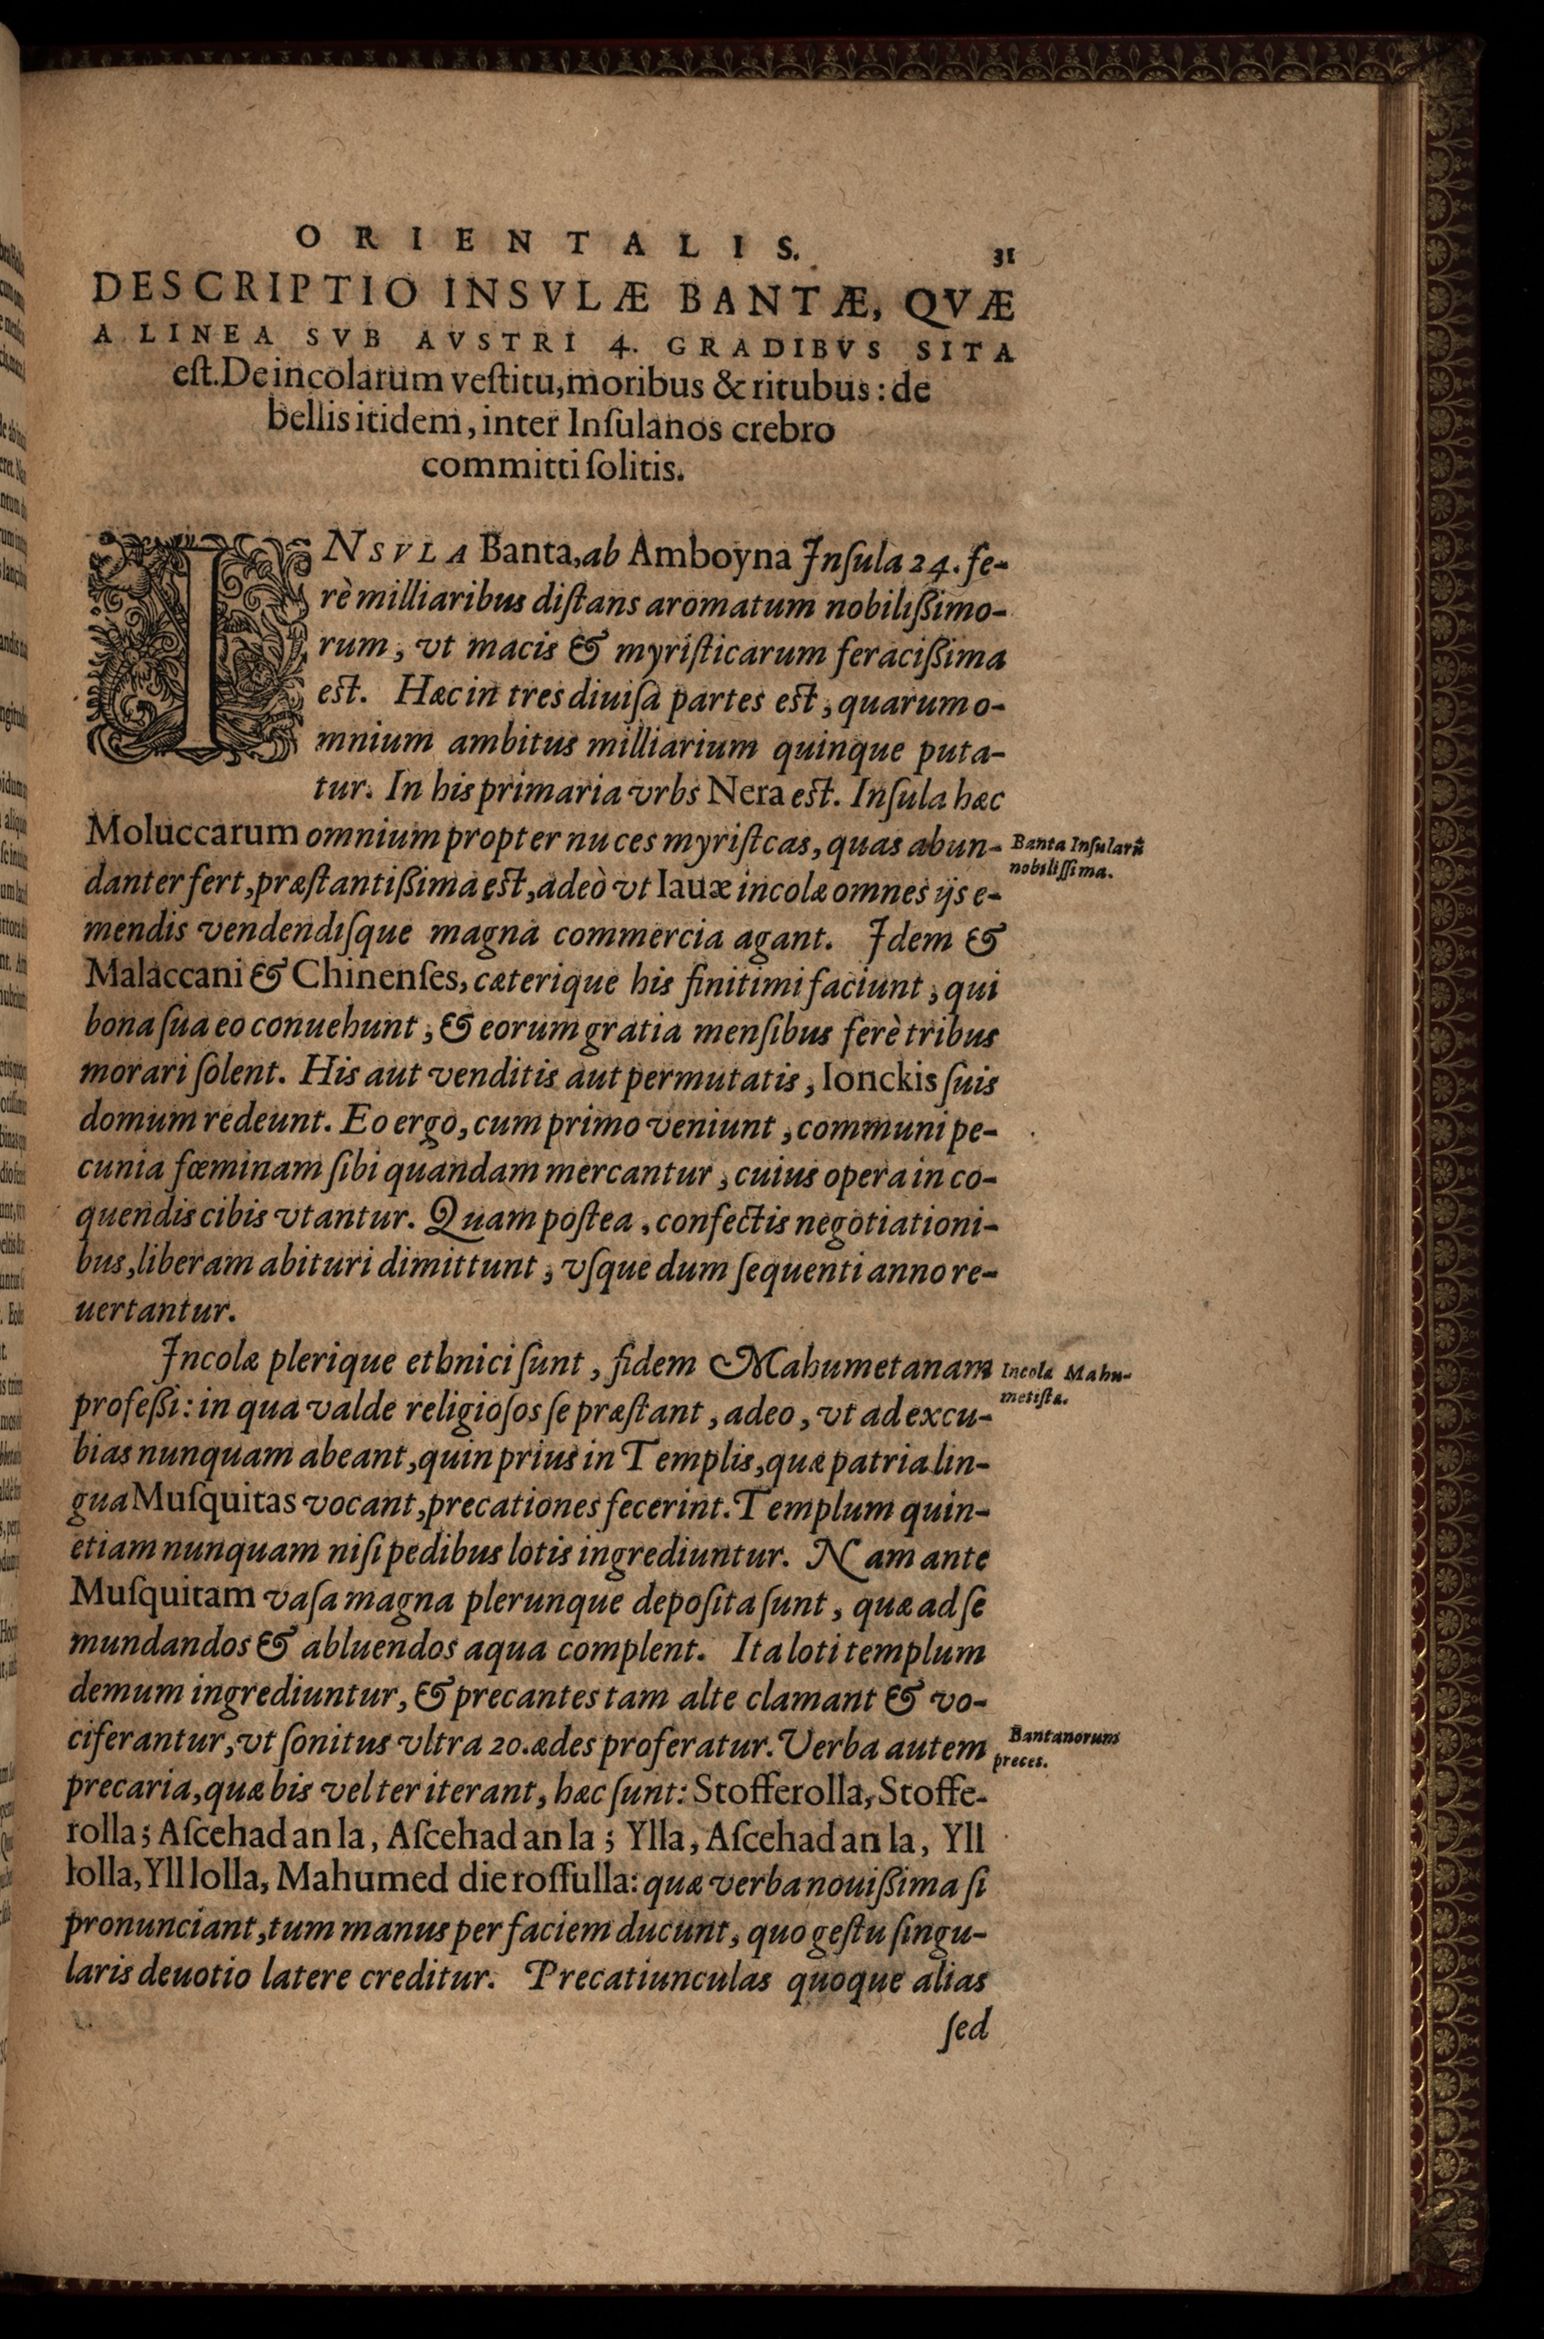 ORIENTALIS.
31
DESCRIPTIO INSVLÆ BANTÆ, QVÆ
A LINEA SVB AVSTRI 4. GRADIBVS SITA
eſt. De incolarum veſtitu, moribus & ritubus: de
bellis itidem, inter Inſulanos crebro
committi ſolitis.
INSVLA Banta, ab Amboyna Inſula 24. fe-
rè milliaribus diſtans aromatum nobilißimo-
rum, vt macis & myriſticarum feracißima
eſt. Hæc in tres diuiſa partes eſt, quarum o-
mnium ambitus milliarium quinque puta-
tur. In his primaria vrbs Nera eſt. Inſula hæc
Moluccarum omnium propter nuces myriſtcas, quas abun-
Banta Inſularũ
nobiliſſima.
danter fert, præſtantißima eſt, adeò vt Iauæ incolæ omnes ijs e-
mendis vendendiſque magna commercia agant. Idem &
Malaccani & Chinenſes, cæterique his finitimi faciunt, qui
bona ſua eo conuehunt, & eorum gratia menſibus ferè tribus
morari ſolent. His aut venditis aut permutatis, Ionckis ſuis
domum redeunt. Eo ergo, cum primo veniunt, communi pe-
cunia fœminam ſibi quandam mercantur, cuius opera in co-
quendis cibis vtantur. Quam poſtea, confectis negotiationi-
bus, liberam abituri dimittunt, vſque dum ſequenti anno re-
uertantur.
Incolæ plerique ethnici ſunt, fidem Mahumetanam
Incolæ Mahu-
metiſtæ.
profeßi: in qua valde religioſos ſe præſtant, adeo, vt ad excu-
bias nunquam abeant, quin prius in Templis, quæ patria lin-
gua Muſquitas vocant, precationes fecerint. Templum quin-
etiam nunquam niſi pedibus lotis ingrediuntur. Nam ante
Muſquitam vaſa magna plerunque depoſita ſunt, quæ ad ſe
mundandos & abluendos aqua complent. Ita loti templum
demum ingrediuntur, & precantes tam alte clamant & vo-
ciferantur, vt ſonitus vltra 20. ædes proferatur. Verba autem
Bantanorum
preces.
precaria, quæ bis vel ter iterant, hæc ſunt: Stofferolla, Stoffe-
rolla; Aſcehad an la, Aſcehad an la; Ylla, Aſcehad an la, Yll
lolla, Yll lolla, Mahumed die roſſulla: quæ verba nouißima ſi
pronunciant, tum manus per faciem ducunt, quo geſtu ſingu-
laris deuotio latere creditur. Precatiunculas quoque alias
ſed